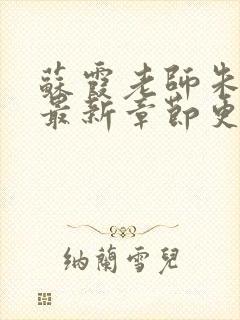 蘇霞老師朱
最新章節更
納蘭雪兒